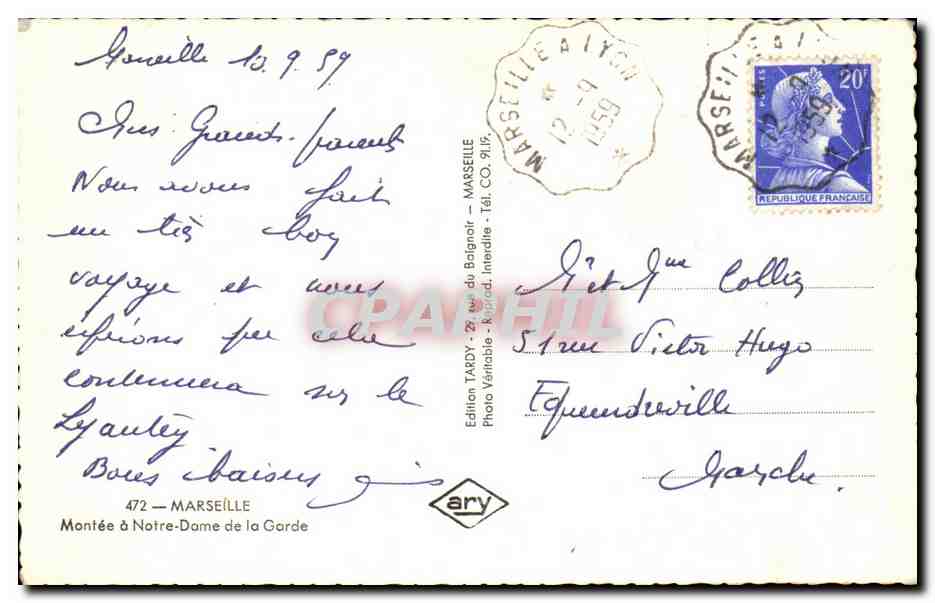 Marseille 10.9.59
Chers Grands-parents
Nous avons fait
un très bon
voyage et nous
espérons que cela
continuera sur le
Lyautey
Bons baisers
472 — MARSEILLE
Montée à Notre-Dame de la Garde
Edition TARDY - 29, rue du Baignoir — MARSEILLE
Photo Véritable - Reprod. Interdite - Tél. CO. 91.19
ary
CPAPHIL
MARSEILLE A LYON
12 -9
1959
MARSEILLE A LYON
12 -9
1959
POSTES
20F
REPUBLIQUE FRANÇAISE
Mr et Mme Collin
51 rue Victor Hugo
Equeurdreville
Manche.